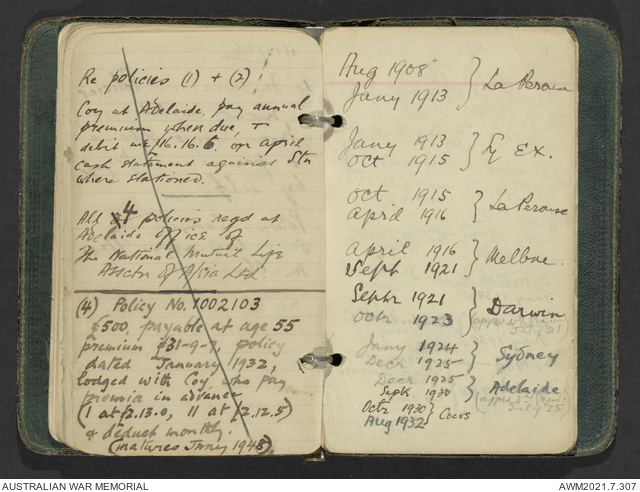 Re policies (1) + (2)
Coy at Adelaide pay annual
premium when due, +
debit me £16.16.6 on april
cash statement against Stn
where stationed.
All 4 policies regd at
Adelaide office of
The National Mutual Life
Assctn of A/sia Ltd
(4) Policy No. 1002103
£500, payable at age 55
premium £31-9-2, policy
dated January 1932,
lodged with Coy, who pay
premia in advance
(1 at £2.13.0, 11 at £2.12.5)
& deduct monthly.
(matures Jany 1948)
Aug 1908
Jany 1913 } La Perouse
Jany 1913
Oct 1915 } Sy Ex.
Oct 1915
April 1916 } La Perouse
April 1916
Sept 1921 } Melbne.
Septr 1921
Octr 1923 } Darwin
July 21
Jany 1924
Decr 1925 } Sydney
Decr 1925
Sept 1930 } Adelaide
July 25
Octr 1930
Aug 1932 } Cocos
AUSTRALIAN WAR MEMORIAL
AWM2021.7.307